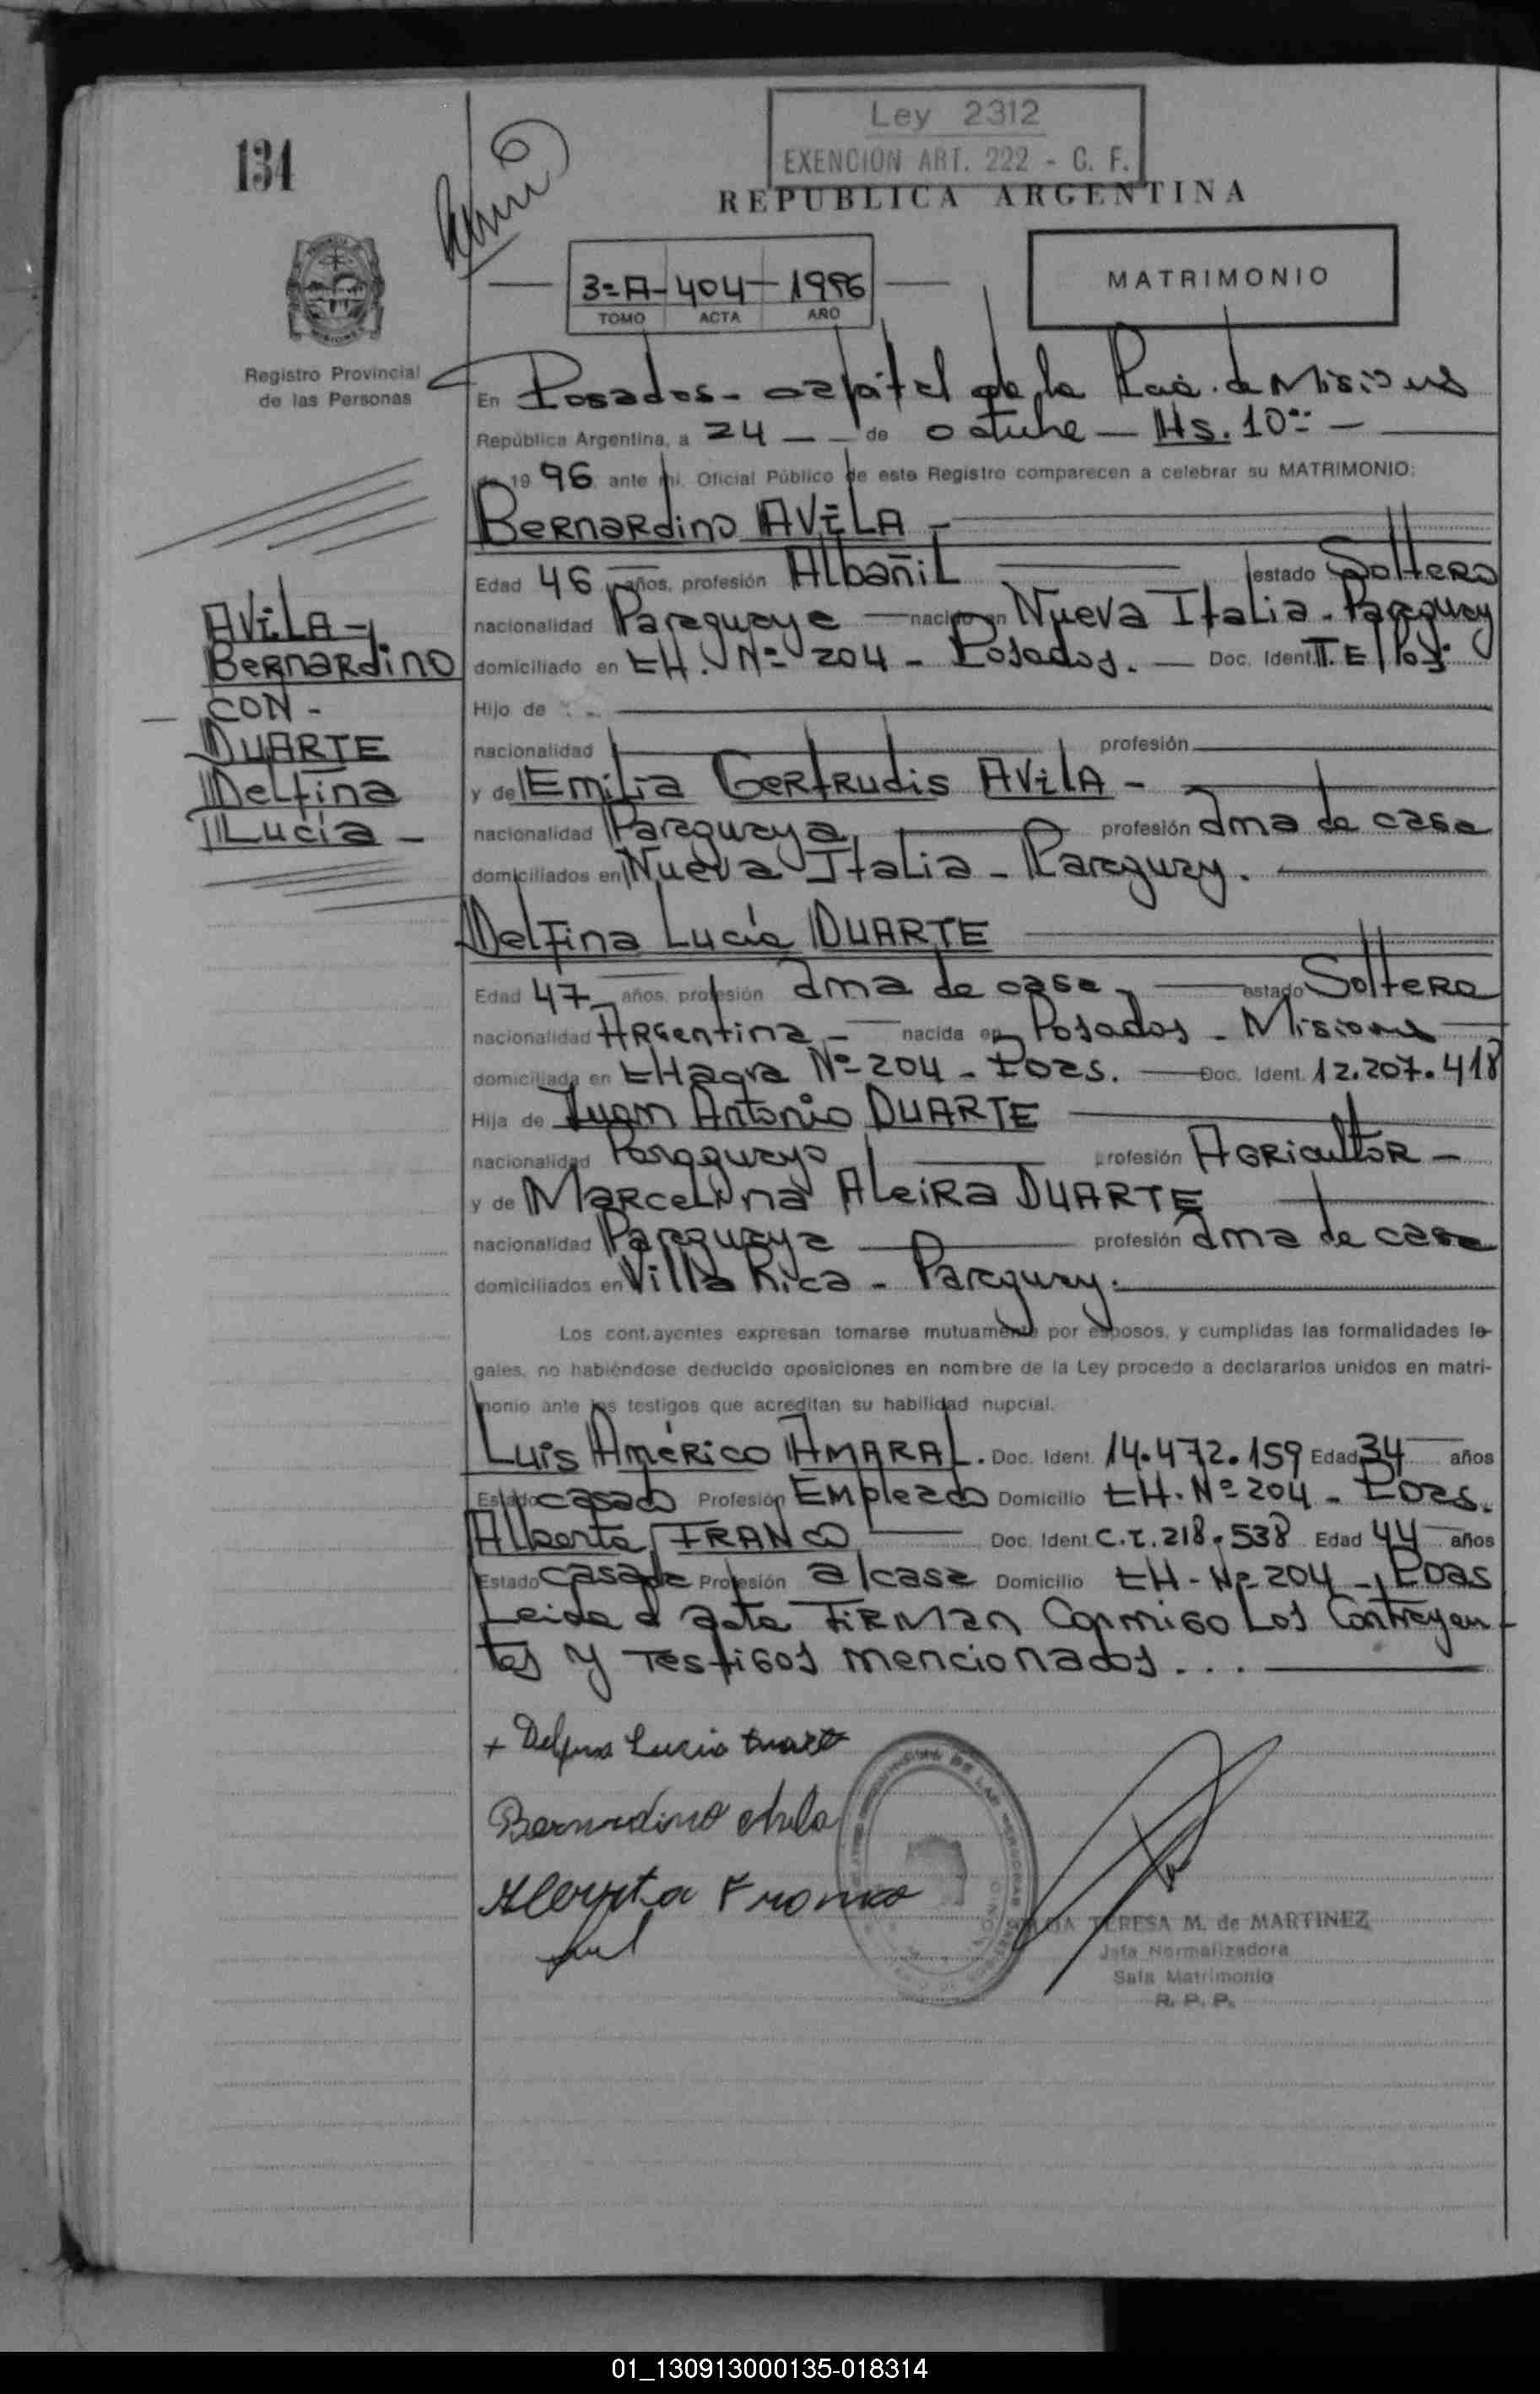 134
Ley 2312
EXENCION ART. 222 - C. F.
REPUBLICA ARGENTINA
3=A- 404- 1996
TOMO ACTA AÑO
MATRIMONIO
Registro Provincial
de las Personas
En Posadas - capital de la de Misiones
República Argentina, a 24 - - de octubre - Hs. 10 -
de 19 96 ante mi, Oficial Público de este Registro comparecen a celebrar su MATRIMONIO:
Bernardino AVILA -
Edad 46 años, profesión Albañil estado Soltero
nacionalidad Paraguaya nacido en Nueva Italia - Paraguay
domiciliado en CH. Nº 204 - Posadas. - Doc. Ident.
Hijo de
nacionalidad profesión
y de Emilia Gertrudis AVILA -
nacionalidad Paraguaya profesión ama de casa
domiciliados en Nueva Italia - Paraguay.
AVILA -
Bernardino
CON -
DUARTE
Delfina
Lucía -
Delfina Lucía DUARTE
Edad 47 años, profesión ama de casa - estado Soltera
nacionalidad Argentina - nacida en Posadas - Misiones
domiciliada en CHacra Nº 204 - Pdas. - Doc. Ident. 12.207.418
Hija de Juan Antonio DUARTE
nacionalidad Paraguayo profesión Agricultor -
y de Marcelina DUARTE
nacionalidad Paraguaya profesión ama de casa
domiciliados en Villa Rica - Paraguay.
Los contrayentes expresan tomarse mutuamente por esposos, y cumplidas las formalidades le-
gales, no habiéndose deducido oposiciones en nombre de la Ley procedo a declararlos unidos en matri-
monio ante los testigos que acreditan su habilidad nupcial.
Luis Américo AMARAL. Doc. Ident. 14.472.159 Edad 34 años
Estado casado Profesión Empleado Domicilio CH. Nº 204 - Pdas.
Alberta FRANCO Doc. Ident C.I. 218.538 Edad 44 años
Estado casada Profesión a/casa Domicilio CH - Nº 204 - Pdas
Leida el acta firman conmigo los contrayen-
tes y testigos mencionados...
+ Delfina Lucia Duarte
Bernardino Avila
Franco
TERESA M. de MARTINEZ
Jefa Normalizadora
Sala Matrimonio
R. P. P.
01_130913000135-018314